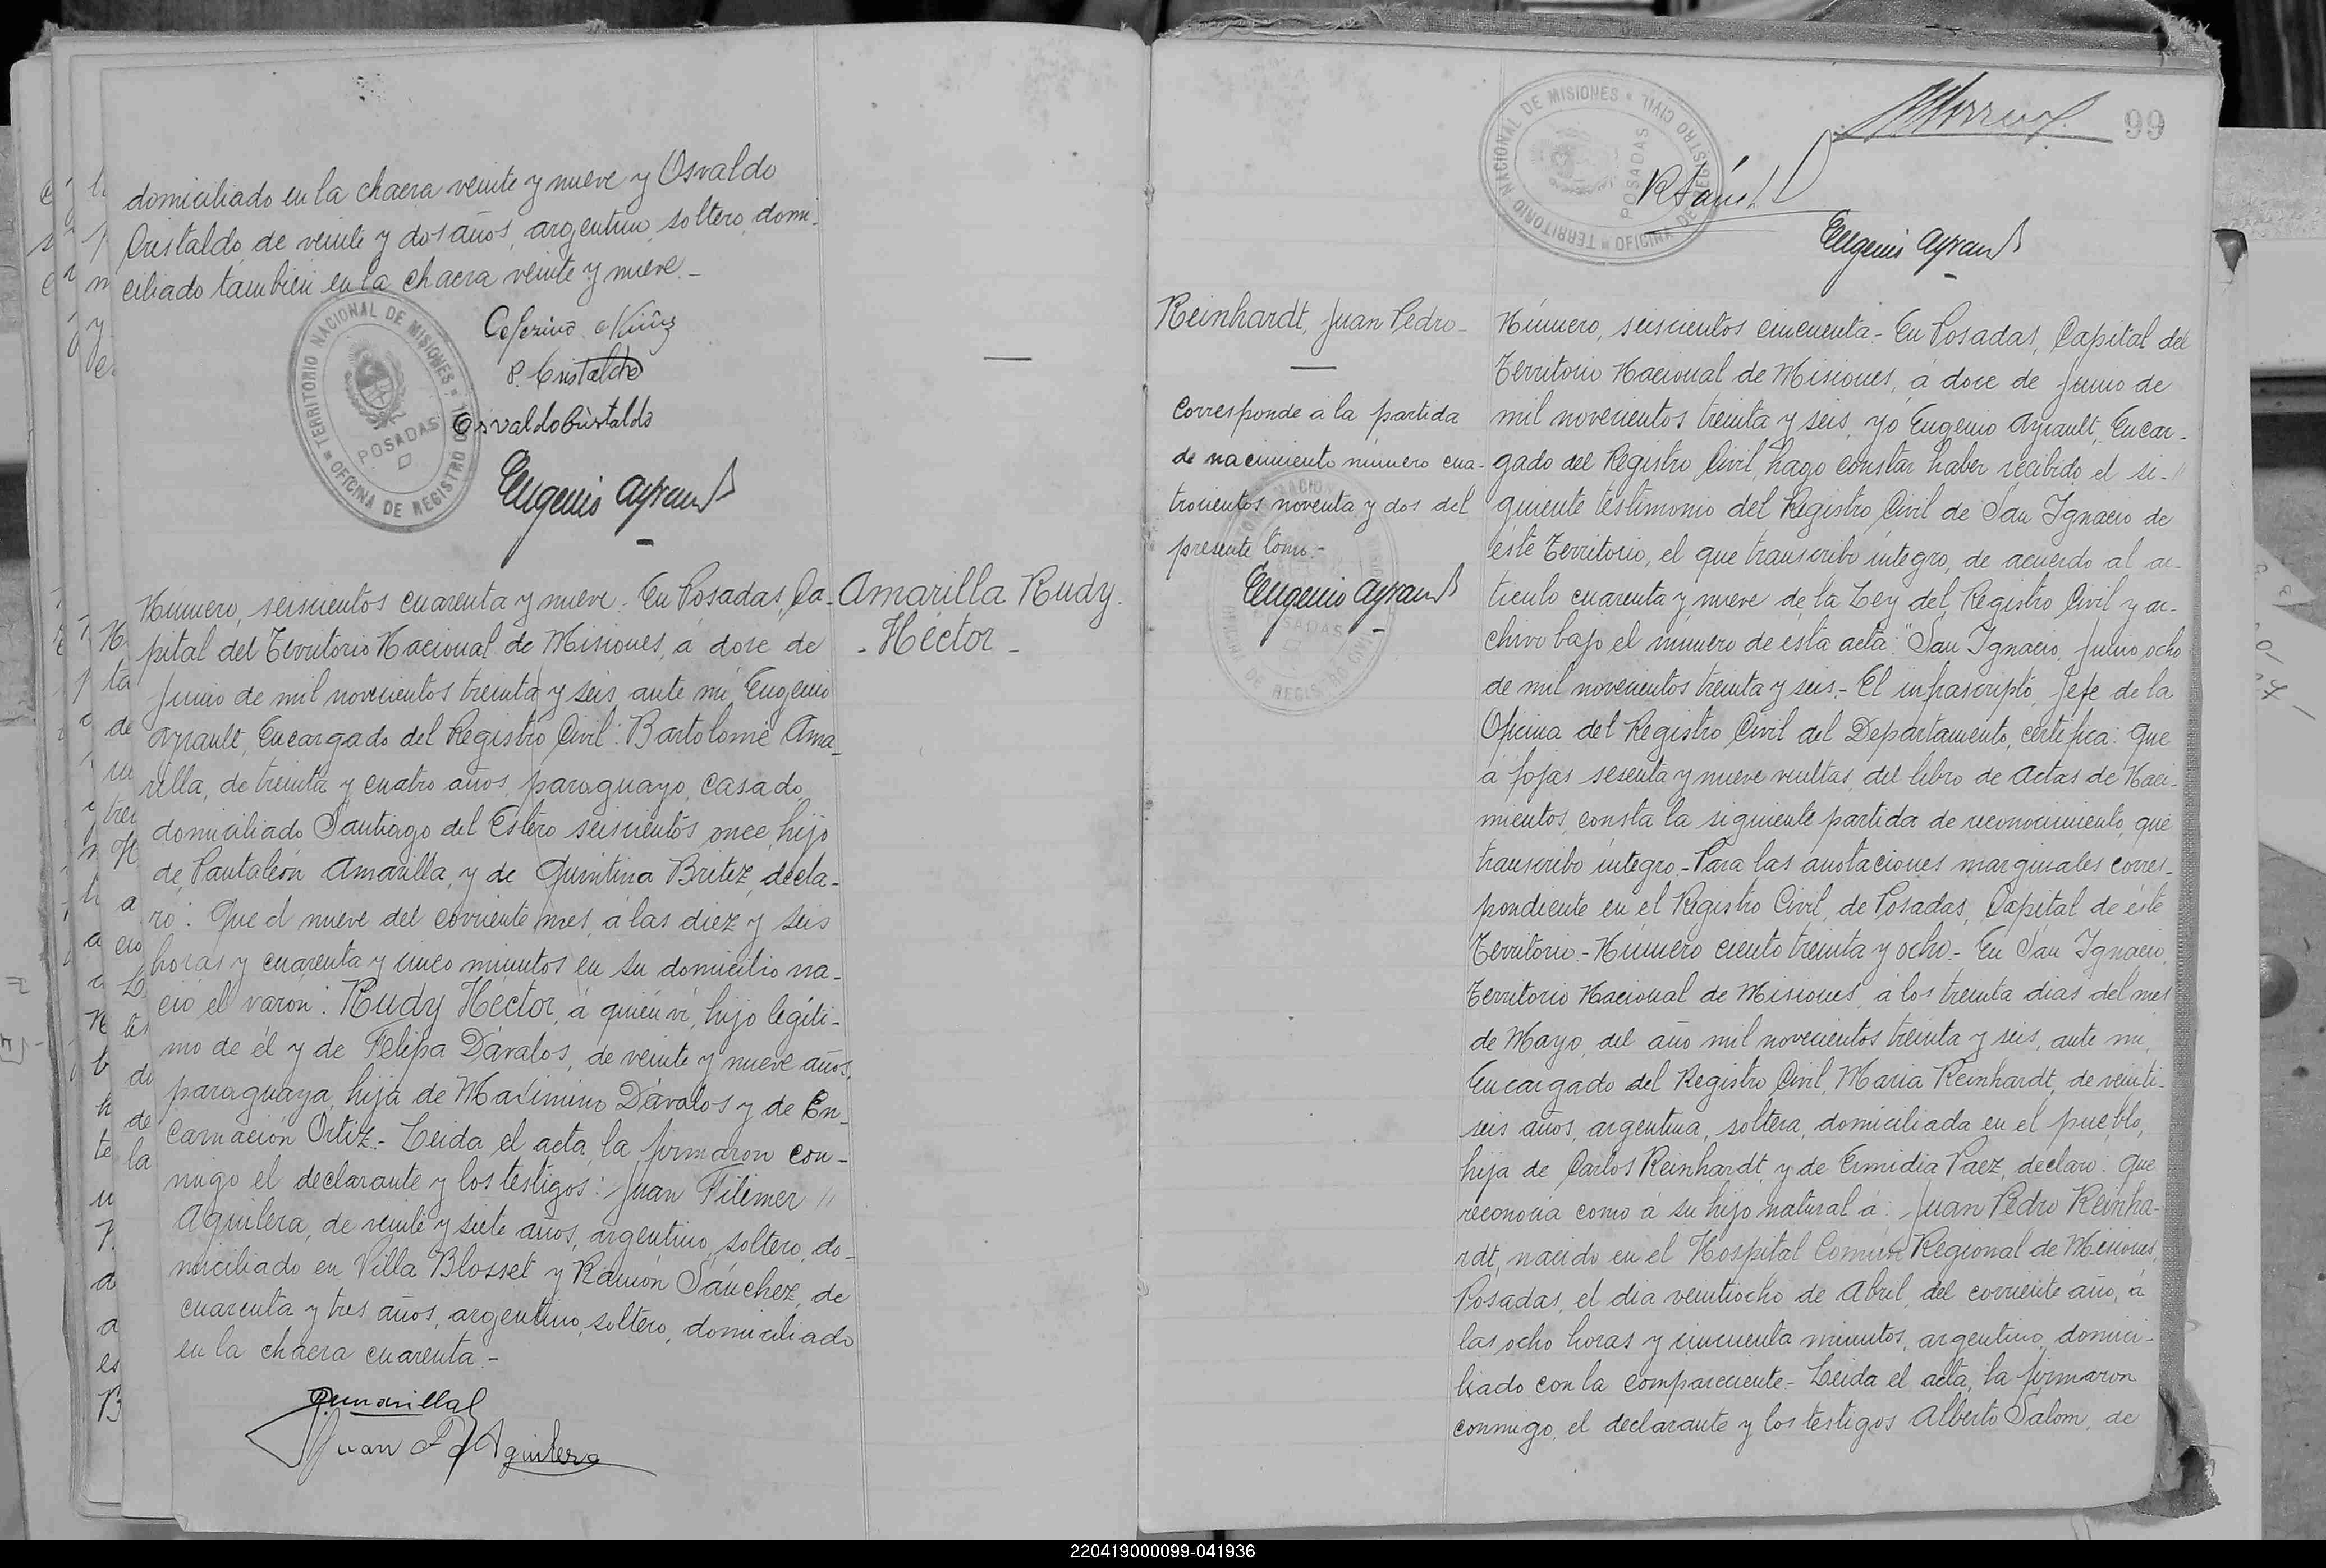 domiciliado en la chacra veinte y nueve y Osvaldo
Cristaldo, de veinte y dos años, argentino, soltero, domi-
ciliado también en la chacra veinte y nueve.-
TERRITORIO NACIONAL DE MISIONES
OFICINA DE REGISTRO CIVIL
POSADAS
Ceferino
P. Cristaldo
Osvaldo Cristaldo
Eugenio Ayrault
Número, seiscientos cuarenta y nueve. En Posadas, Ca-
pital del Territorio Nacional de Misiones, á doce de
Junio de mil novecientos treinta y seis ante mí Eugenio
Ayrault, Encargado del Registro Civil: Bartolomé Ama-
rilla, de treinta y cuatro años, paraguayo, casado,
domiciliado Santiago del Estero seiscientos once, hijo
de Pantaleón Amarilla, y de Quintina Britez, decla-
ró: Que el nueve del corriente mes, á las diez y seis
horas y cuarenta y cinco minutos en su domicilio na-
ció el varón: Rudy Héctor, á quién ví, hijo legíti-
mo de él y de Felipa Dávalos, de veinte y nueve años,
paraguaya, hija de Maximino Dávalos y de En-
carnación Ortiz.- Leida el acta, la firmaron con-
migo el declarante y los testigos: Juan Filimer "
Aguilera, de veinte y siete años, argentino, soltero, do-
miciliado en Villa Blosset y Ramón Sánchez, de
cuarenta y tres años, argentino, soltero, domiciliado
en la chacra cuarenta.-
Amarilla Rudy
- Héctor -
Juan F. Aguilera
99
TERRITORIO NACIONAL DE MISIONES
OFICINA DE REGISTRO CIVIL
POSADAS
Eugenio Ayrault
Reinhardt, Juan Pedro-
Corresponde á la partida
de nacimiento número cua-
trocientos noventa y dos del
presente tomo.-
Eugenio Ayrault
Número, seiscientos cincuenta.- En Posadas, Capital del
Territorio Nacional de Misiones, á doce de Junio de
mil novecientos treinta y seis, yo Eugenio Ayrault, Encar-
gado del Registro Civil, hago constar haber recibido el si-"
guiente testimonio del Registro Civil de San Ignacio de
éste Territorio, el que transcribo íntegro, de acuerdo al ar-
tículo cuarenta y nueve de la Ley del Registro Civil y ar-
chivo bajo el número de ésta acta: "San Ignacio, Junio ocho
de mil novecientos treinta y seis.- El infrascripto, Jefe de la
Oficina del Registro Civil del Departamento, certifica: Que
á fojas sesenta y nueve vueltas, del libro de Actas de Naci-
mientos, consta la siguiente partida de reconocimiento, que
transcribo íntegro.- Para las anotaciones marginales corres-
pondiente en el Registro Civil, de Posadas, Capital de éste
Territorio.- Número ciento treinta y ocho.- En San Ignacio,
Territorio Nacional de Misiones, á los treinta dias del mes
de Mayo, del año mil novecientos treinta y seis, ante mi,
Encargado del Registro Civil, Maria Reinhardt, de veinti-
seis años, argentina, soltera, domiciliada en el pueblo,
hija de Carlos Reinhardt, y de Ermidia Paez, declaro: Que
reconocía como á su hijo natural á: Juan Pedro Reinha-
rdt, nacido en el Hospital Común Regional de Misiones,
Posadas, el dia veintiocho de Abril, del corriente año, á
las ocho horas y cincuenta minutos, argentino, domici-
liado con la compareciente.- Leida el acta, la firmaron
conmigo, el declarante y los testigos Alberto Salom, de
220419000099-041936